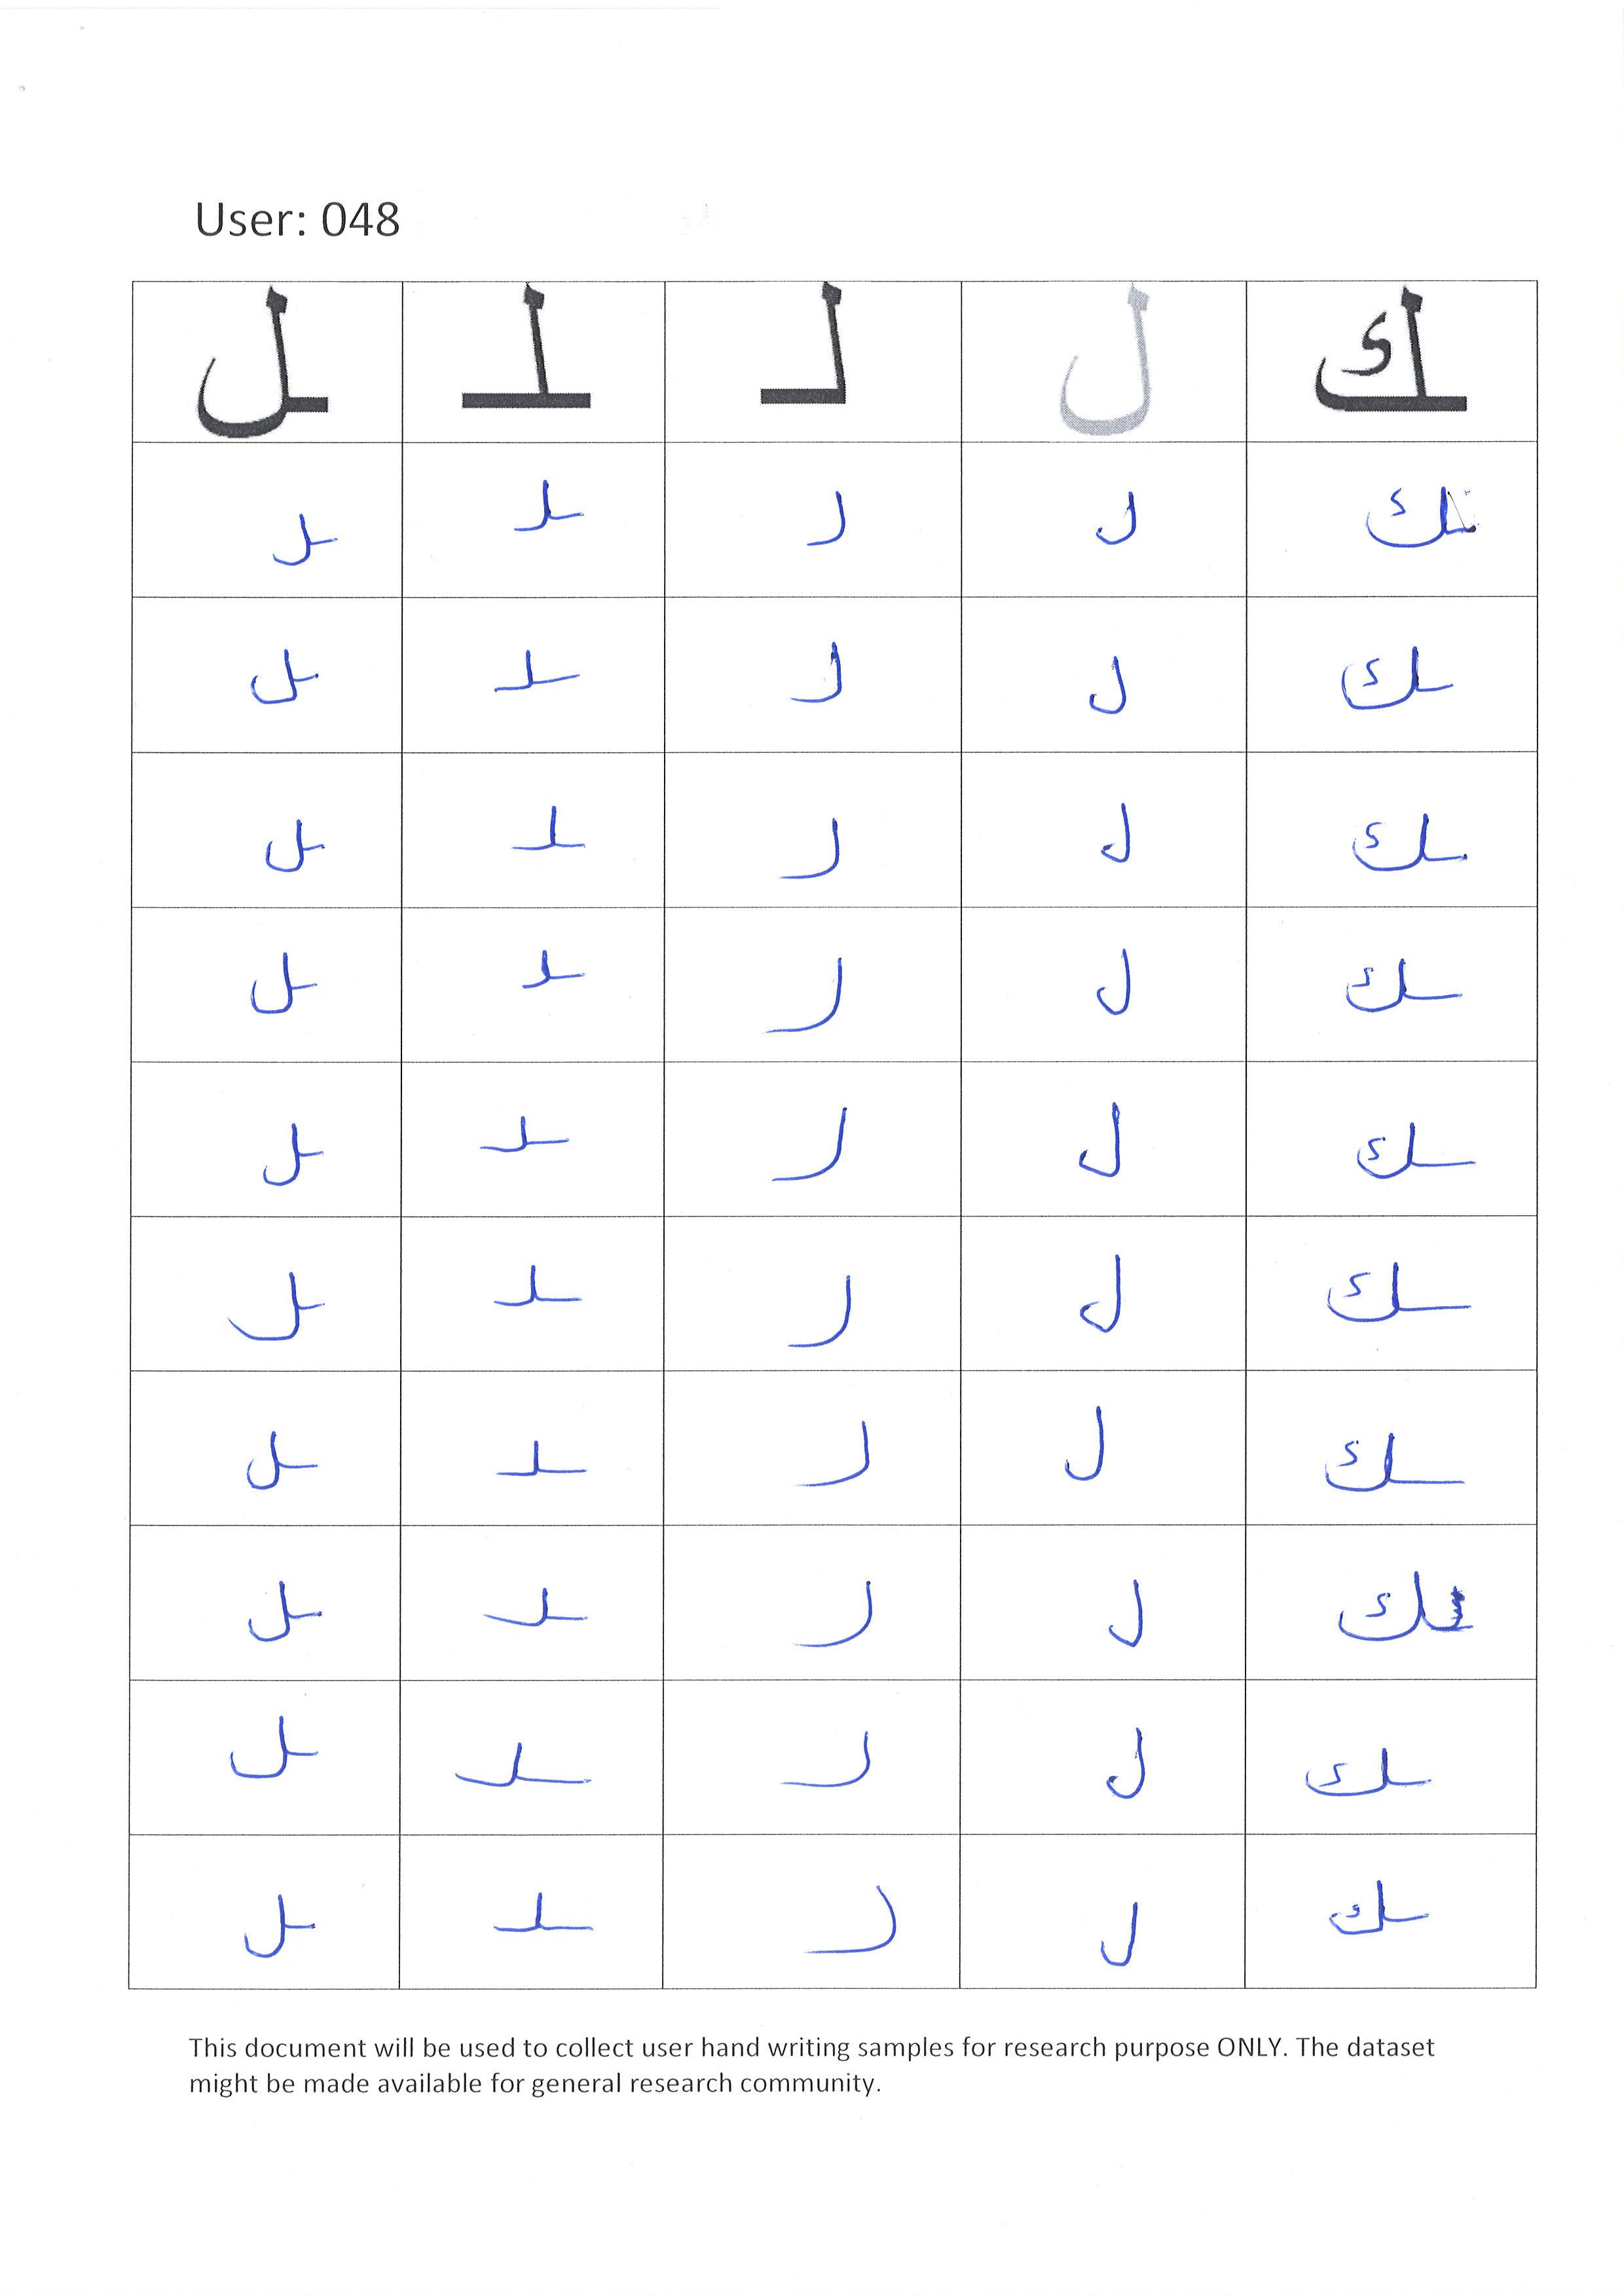 User: 048
ـك ل لـ ـلـ ـل
ـك ل لـ ـلـ ـل
ـك ل لـ ـلـ ـل
ـك ل لـ ـلـ ـل
ـك ل لـ ـلـ ـل
ـك ل لـ ـلـ ـل
ـك ل لـ ـلـ ـل
ـك ل لـ ـلـ ـل
ـك ل لـ ـلـ ـل
ـك ل لـ ـلـ ـل
ـك ل لـ ـلـ ـل
This document will be used to collect user hand writing samples for research purpose ONLY. The dataset
might be made available for general research community.